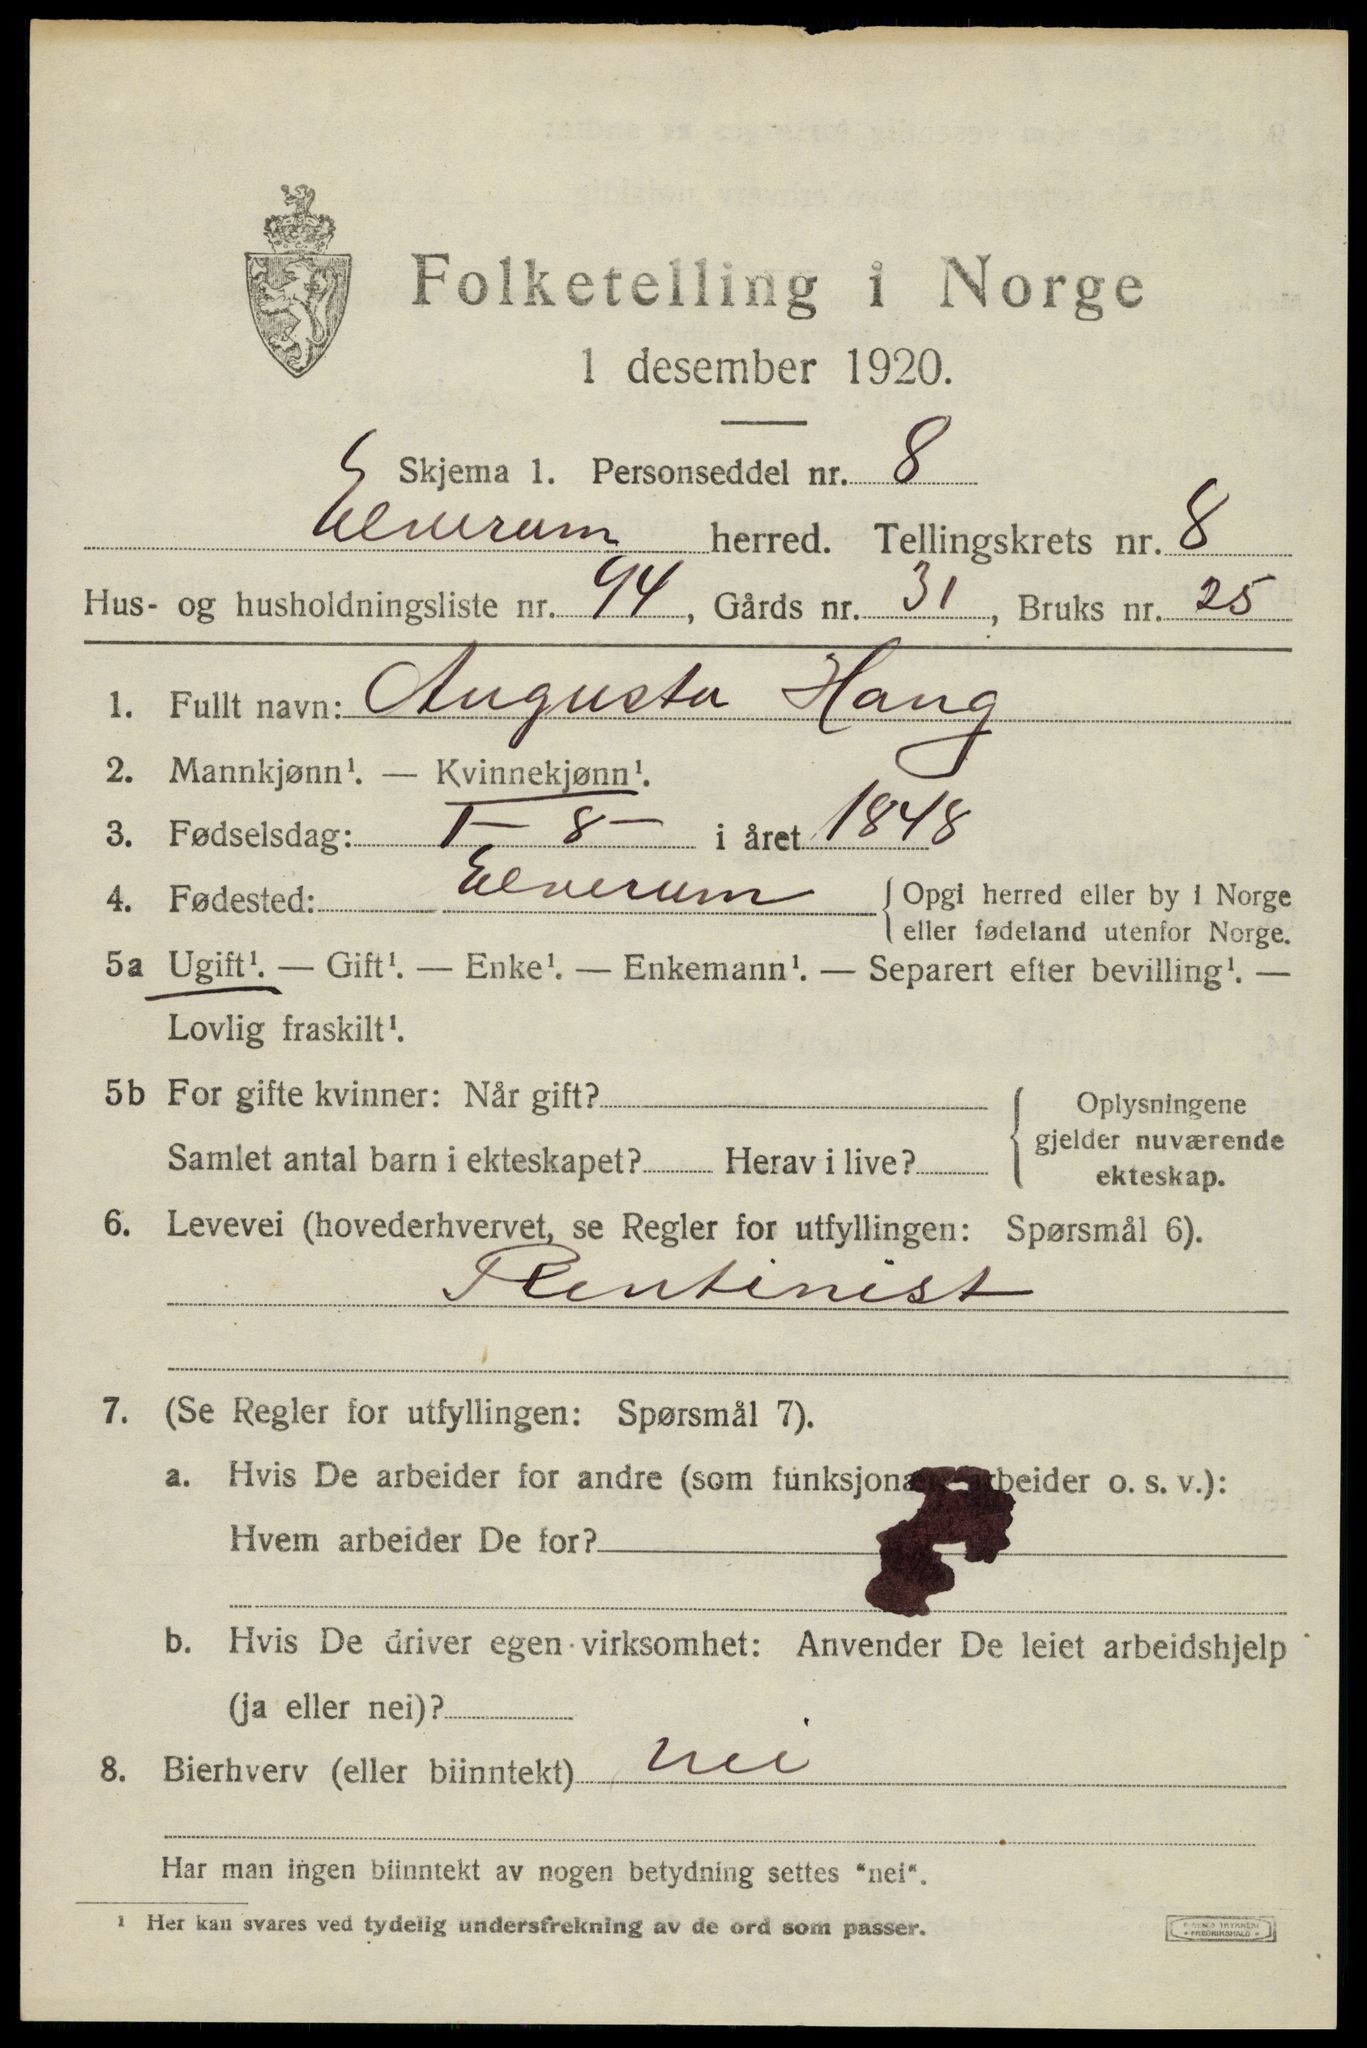 Folketelling i Norge
1 desember 1920.
Skjema 1. Personseddel nr. 8
Elverum herred. Tellingskrets nr. 8
Hus- og husholdningsliste nr. 94, Gårds nr. 31, Bruks nr. 25
1. Fullt navn: Augusta Haug
2. Mannkjønn¹. — Kvinnekjønn¹.
3. Fødselsdag: 1 – 8 – i året 1848
4. Fødested: Elverum {Opgi herred eller by i Norge
eller fødeland utenfor Norge.
5a Ugift¹. — Gift¹. — Enke¹. — Enkemann¹. — Separert efter bevilling¹. —
Lovlig fraskilt¹.
5b For gifte kvinner: Når gift?
Samlet antal barn i ekteskapet? Herav i live?
Oplysningene
gjelder nuværende
ekteskap.
6. Levevei (hovederhvervet, se Regler for utfyllingen: Spørsmål 6).
Rentinist
7. (Se Regler for utfyllingen: Spørsmål 7).
a. Hvis De arbeider for andre (som funksjonær, arbeider o. s. v.):
Hvem arbeider De for?
b. Hvis De driver egen virksomhet: Anvender De leiet arbeidshjelp
(ja eller nei)?
8. Bierhverv (eller biinntekt) nei
Har man ingen biinntekt av nogen betydning settes "nei".
¹ Her kan svares ved tydelig understrekning av de ord som passer.